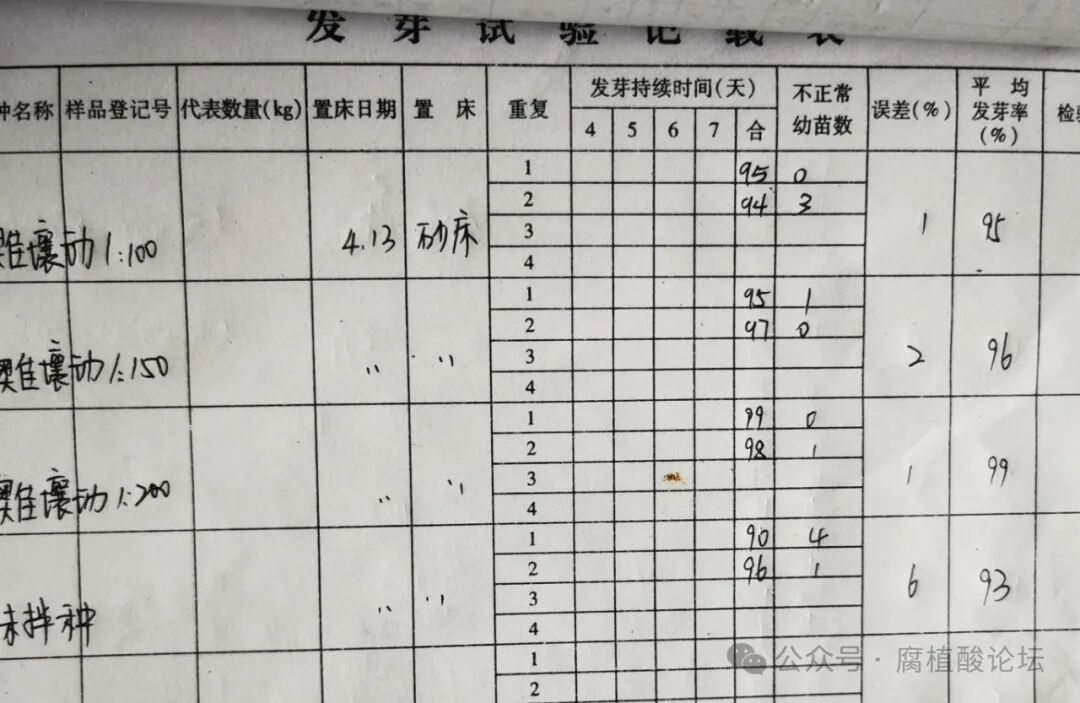 发芽试验记载表
种名称 样品登记号 代表数量(kg) 置床日期 置 床 重复 发芽持续时间(天) 不正常幼苗数 误差(%) 平均发芽率(%) 检验
4 5 6 7 合
1 95 0
2 94 3
壤动1:100 4.13 砂床 3 1 95
4
1 95 1
2 97 0
壤动1:150 〃 〃 3 2 96
4
1 99 0
2 98 1
壤动1:200 〃 〃 3 1 99
4
1 90 4
2 96 1
未拌种 〃 〃 3 6 93
4
1
2
公众号·腐植酸论坛